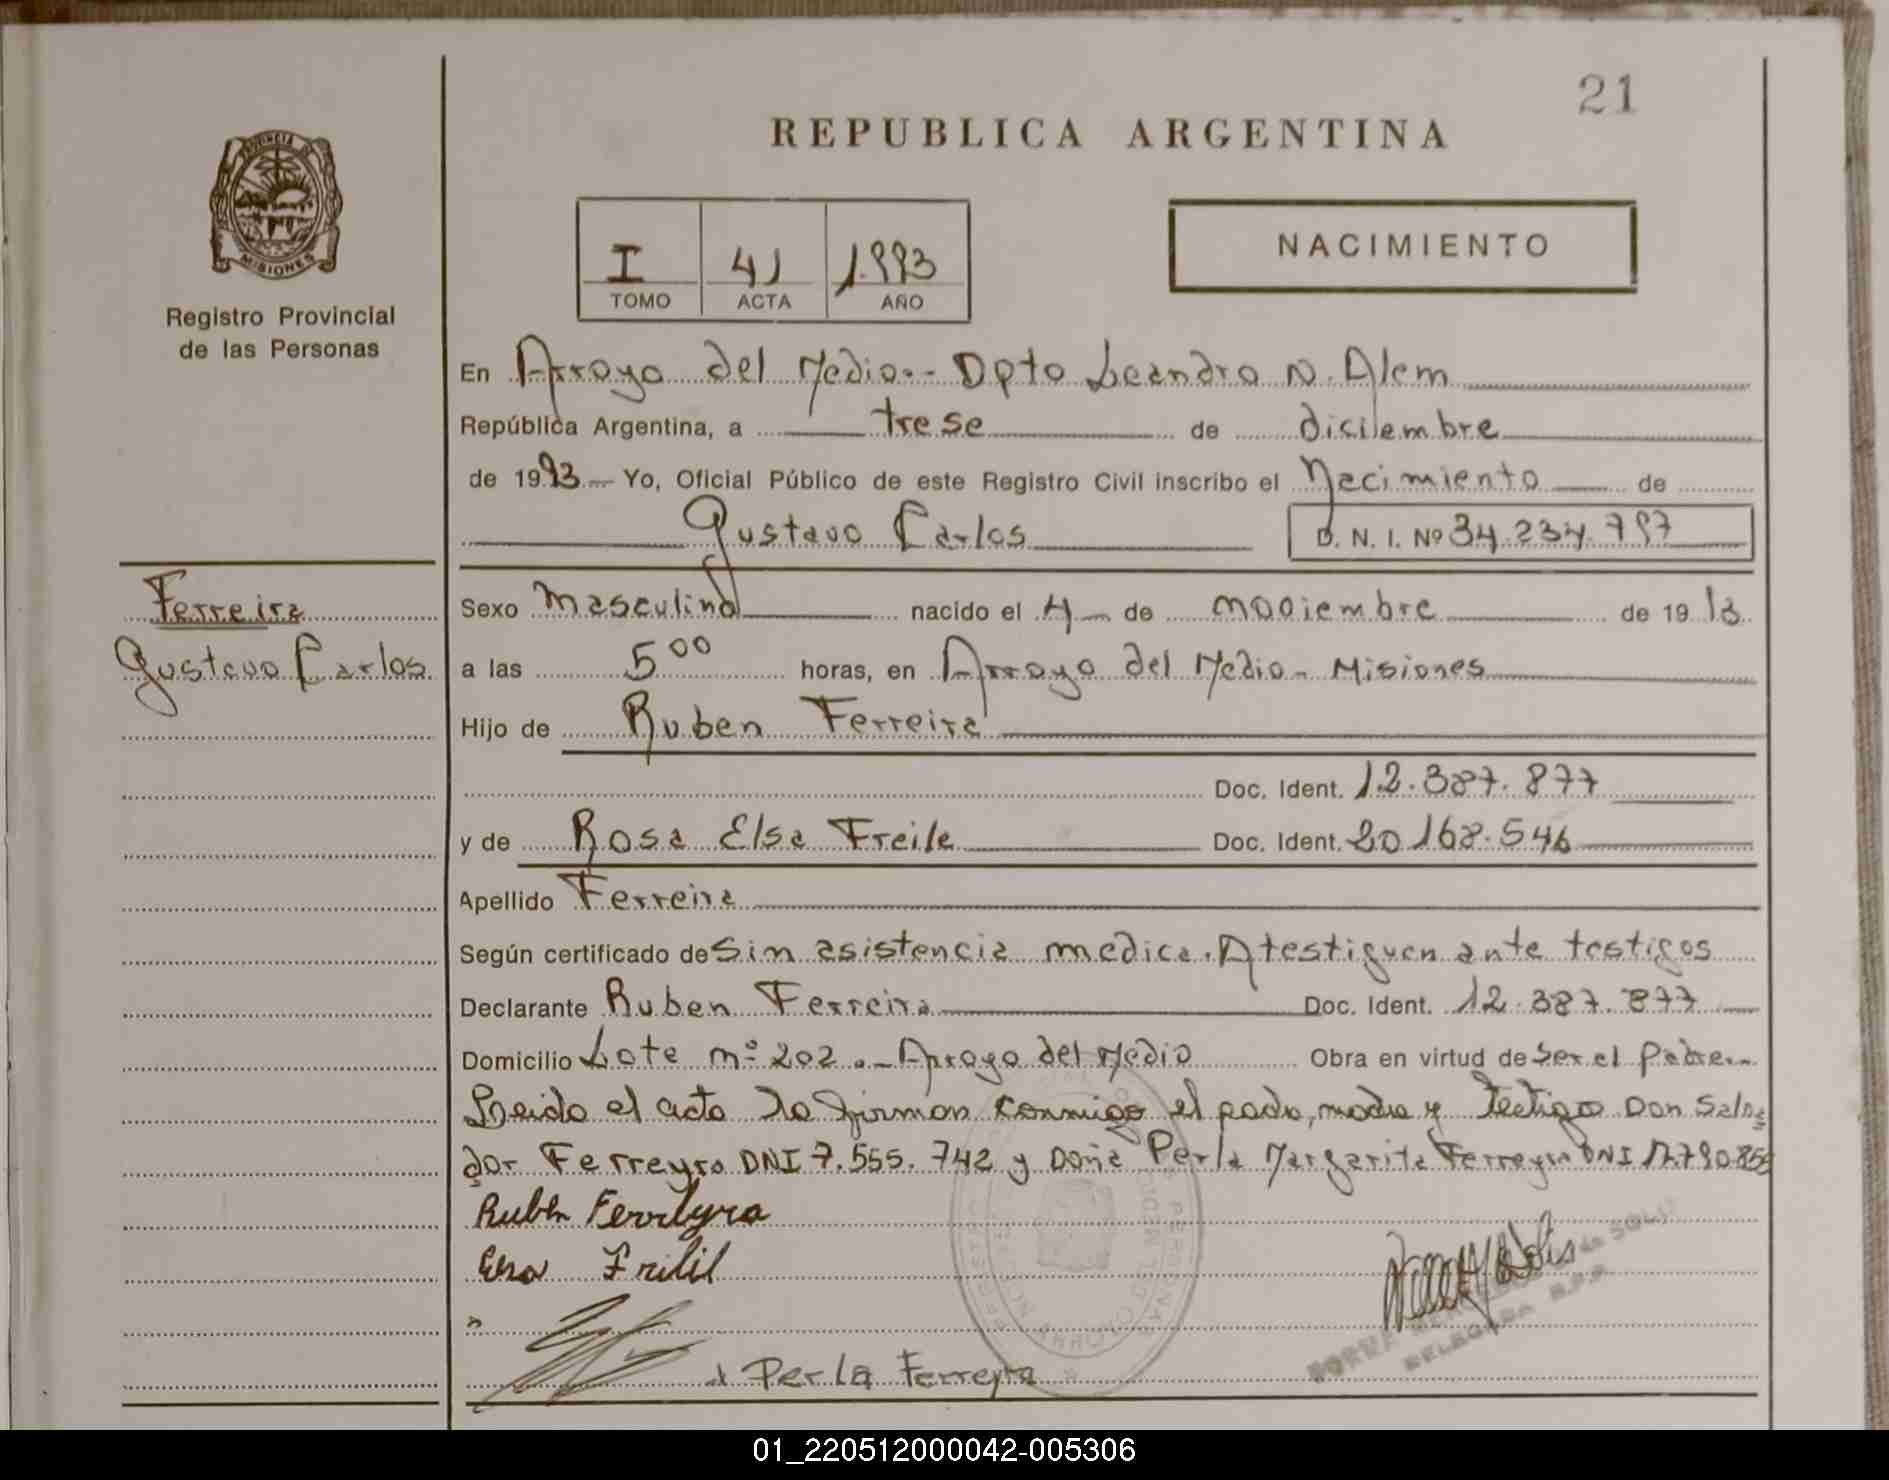 21
REPUBLICA ARGENTINA
PROVINCIA DE
MISIONES
Registro Provincial
de las Personas
I 41 1.993
TOMO ACTA AÑO
NACIMIENTO
En Arroyo del Medio.- Dpto Leandro N. Alem
República Argentina, a trese de diciembre
de 1993 Yo, Oficial Público de este Registro Civil inscribo el Nacimiento de
Gustavo Carlos D. N. I. Nº 34.234.797
Ferreira
Gustavo Carlos
Sexo Masculino nacido el 4 de noviembre de 19
a las 5 00 horas, en Arroyo del Medio - Misiones
Hijo de Ruben Ferreira
Doc. Ident. 12.387.877
y de Rosa Elsa Freile Doc. Ident. 20.168.546
Apellido Ferreira
Según certificado de Sin asistencia medica. Atestiguen ante testigos
Declarante Ruben Ferreira Doc. Ident. 12.387.877
Domicilio Lote nº 202 .- Arroyo del Medio Obra en virtud de ser el Padre.-
Leido el acta la firman conmigo el padre, madre y testigos Don Salva
dor Ferreyra DNI 7.555.742 y Doña Perla Margarita Ferreyra DNI
Ruben Ferreyra
Elsa
Perla Ferreyra
01_220512000042-005306